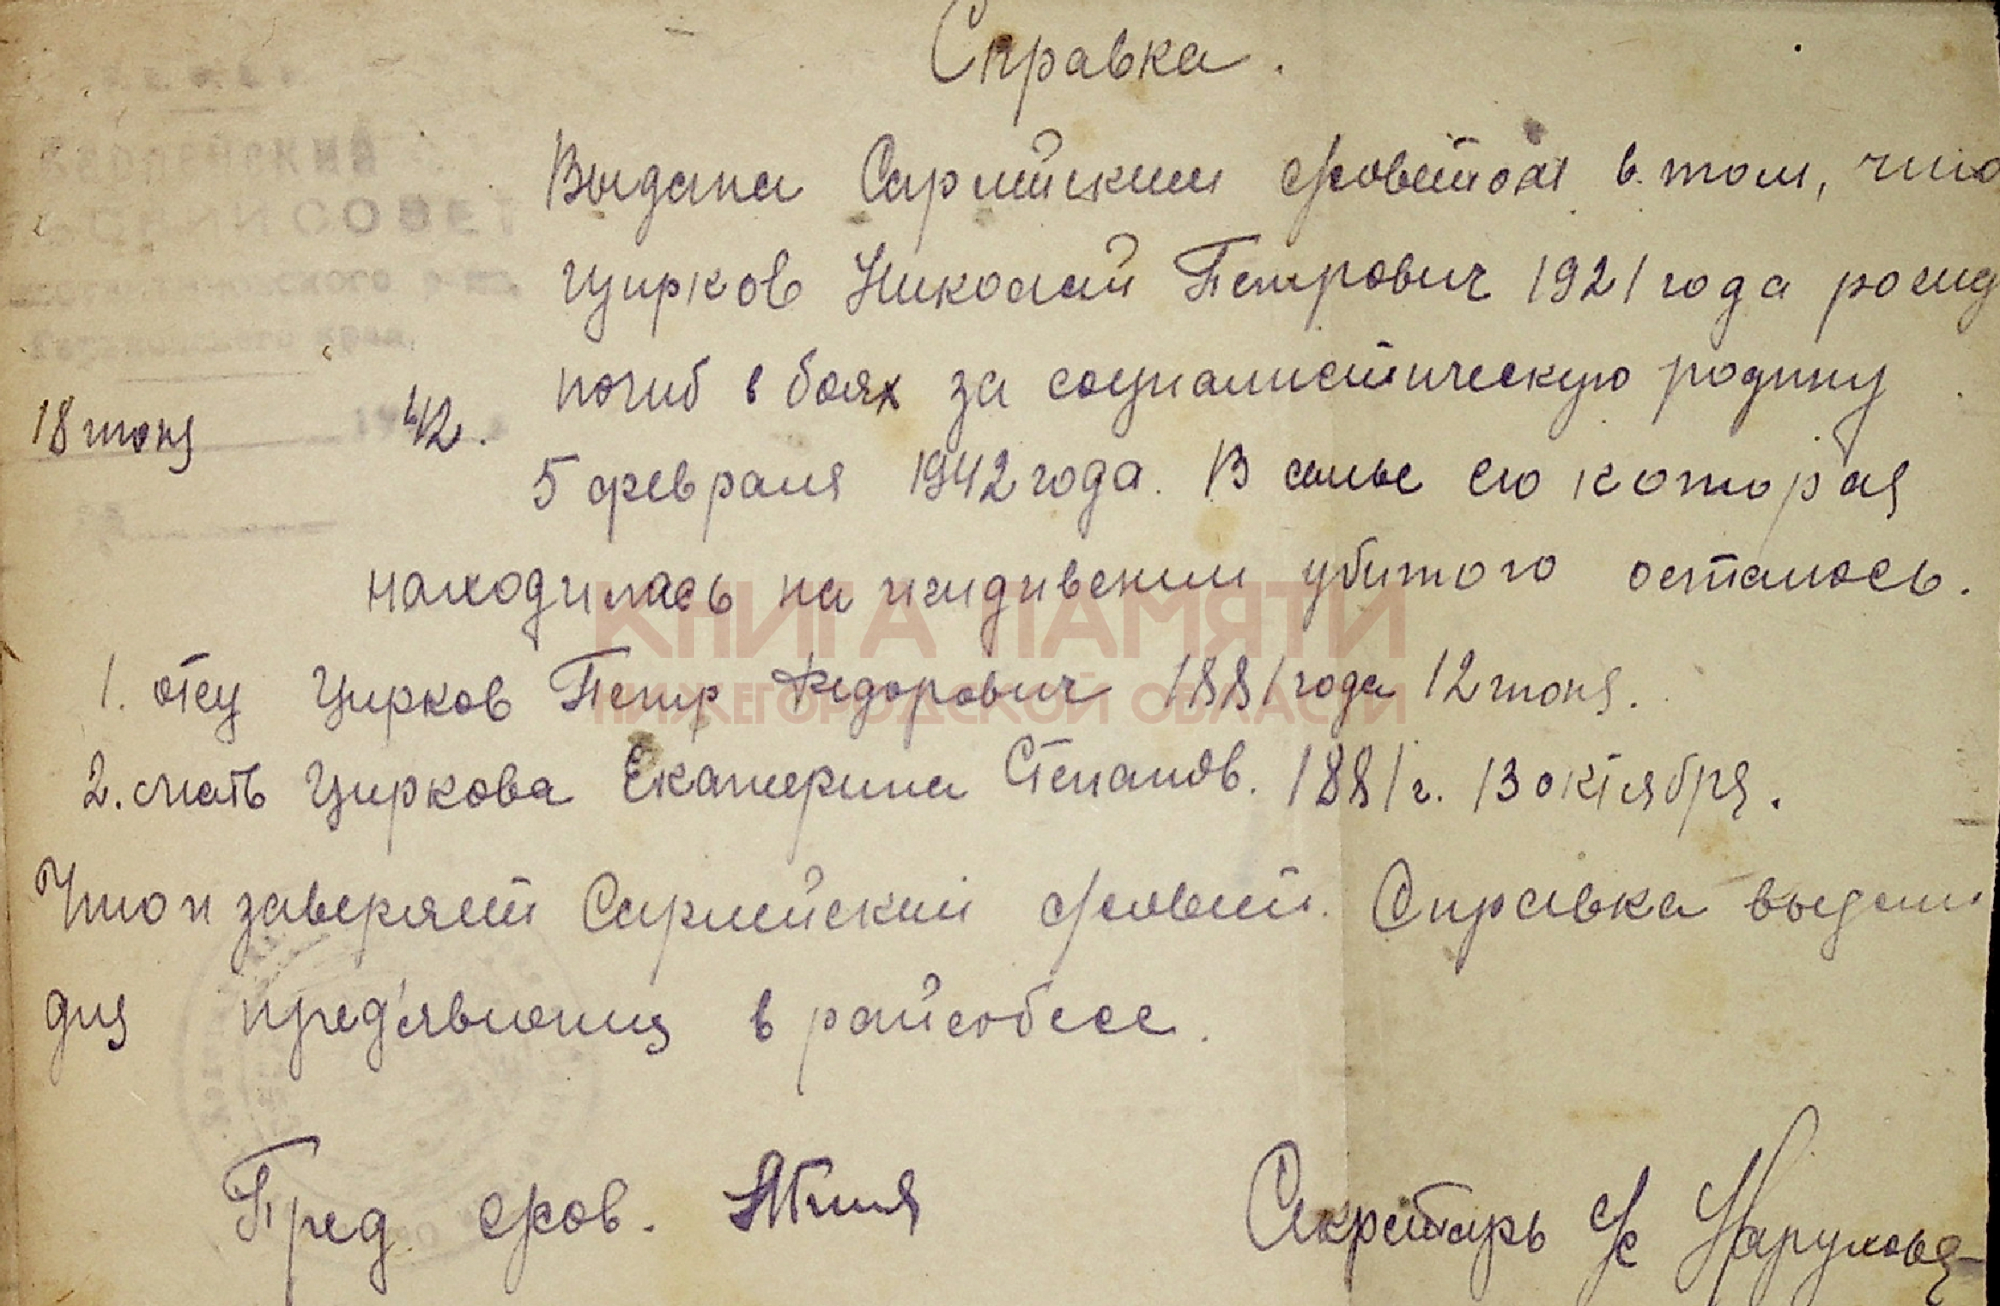 Справка.
СОВЕТ
Выдана Сарлейским с/советом в том, что
Цирков Николай Петрович 1921 года рожд
погиб в боях за социалистическую родину
18 июня 42.
5 февраля 1942 года. В семье его которая
находилась на иждивении убитого осталось.
КНИГА ПАМЯТИ
НИЖЕГОРОДСКОЙ ОБЛАСТИ
1. отец Цирков Петр Федорович 1881 года 12 июня.
2. мать Циркова Екатерина Степанов. 1881 г. 13 октября.
Что и заверяет Сарлейский с/совет. Справка выдана
для пред'явления в райсобесе.
Пред с/сов.
Секретарь с/с